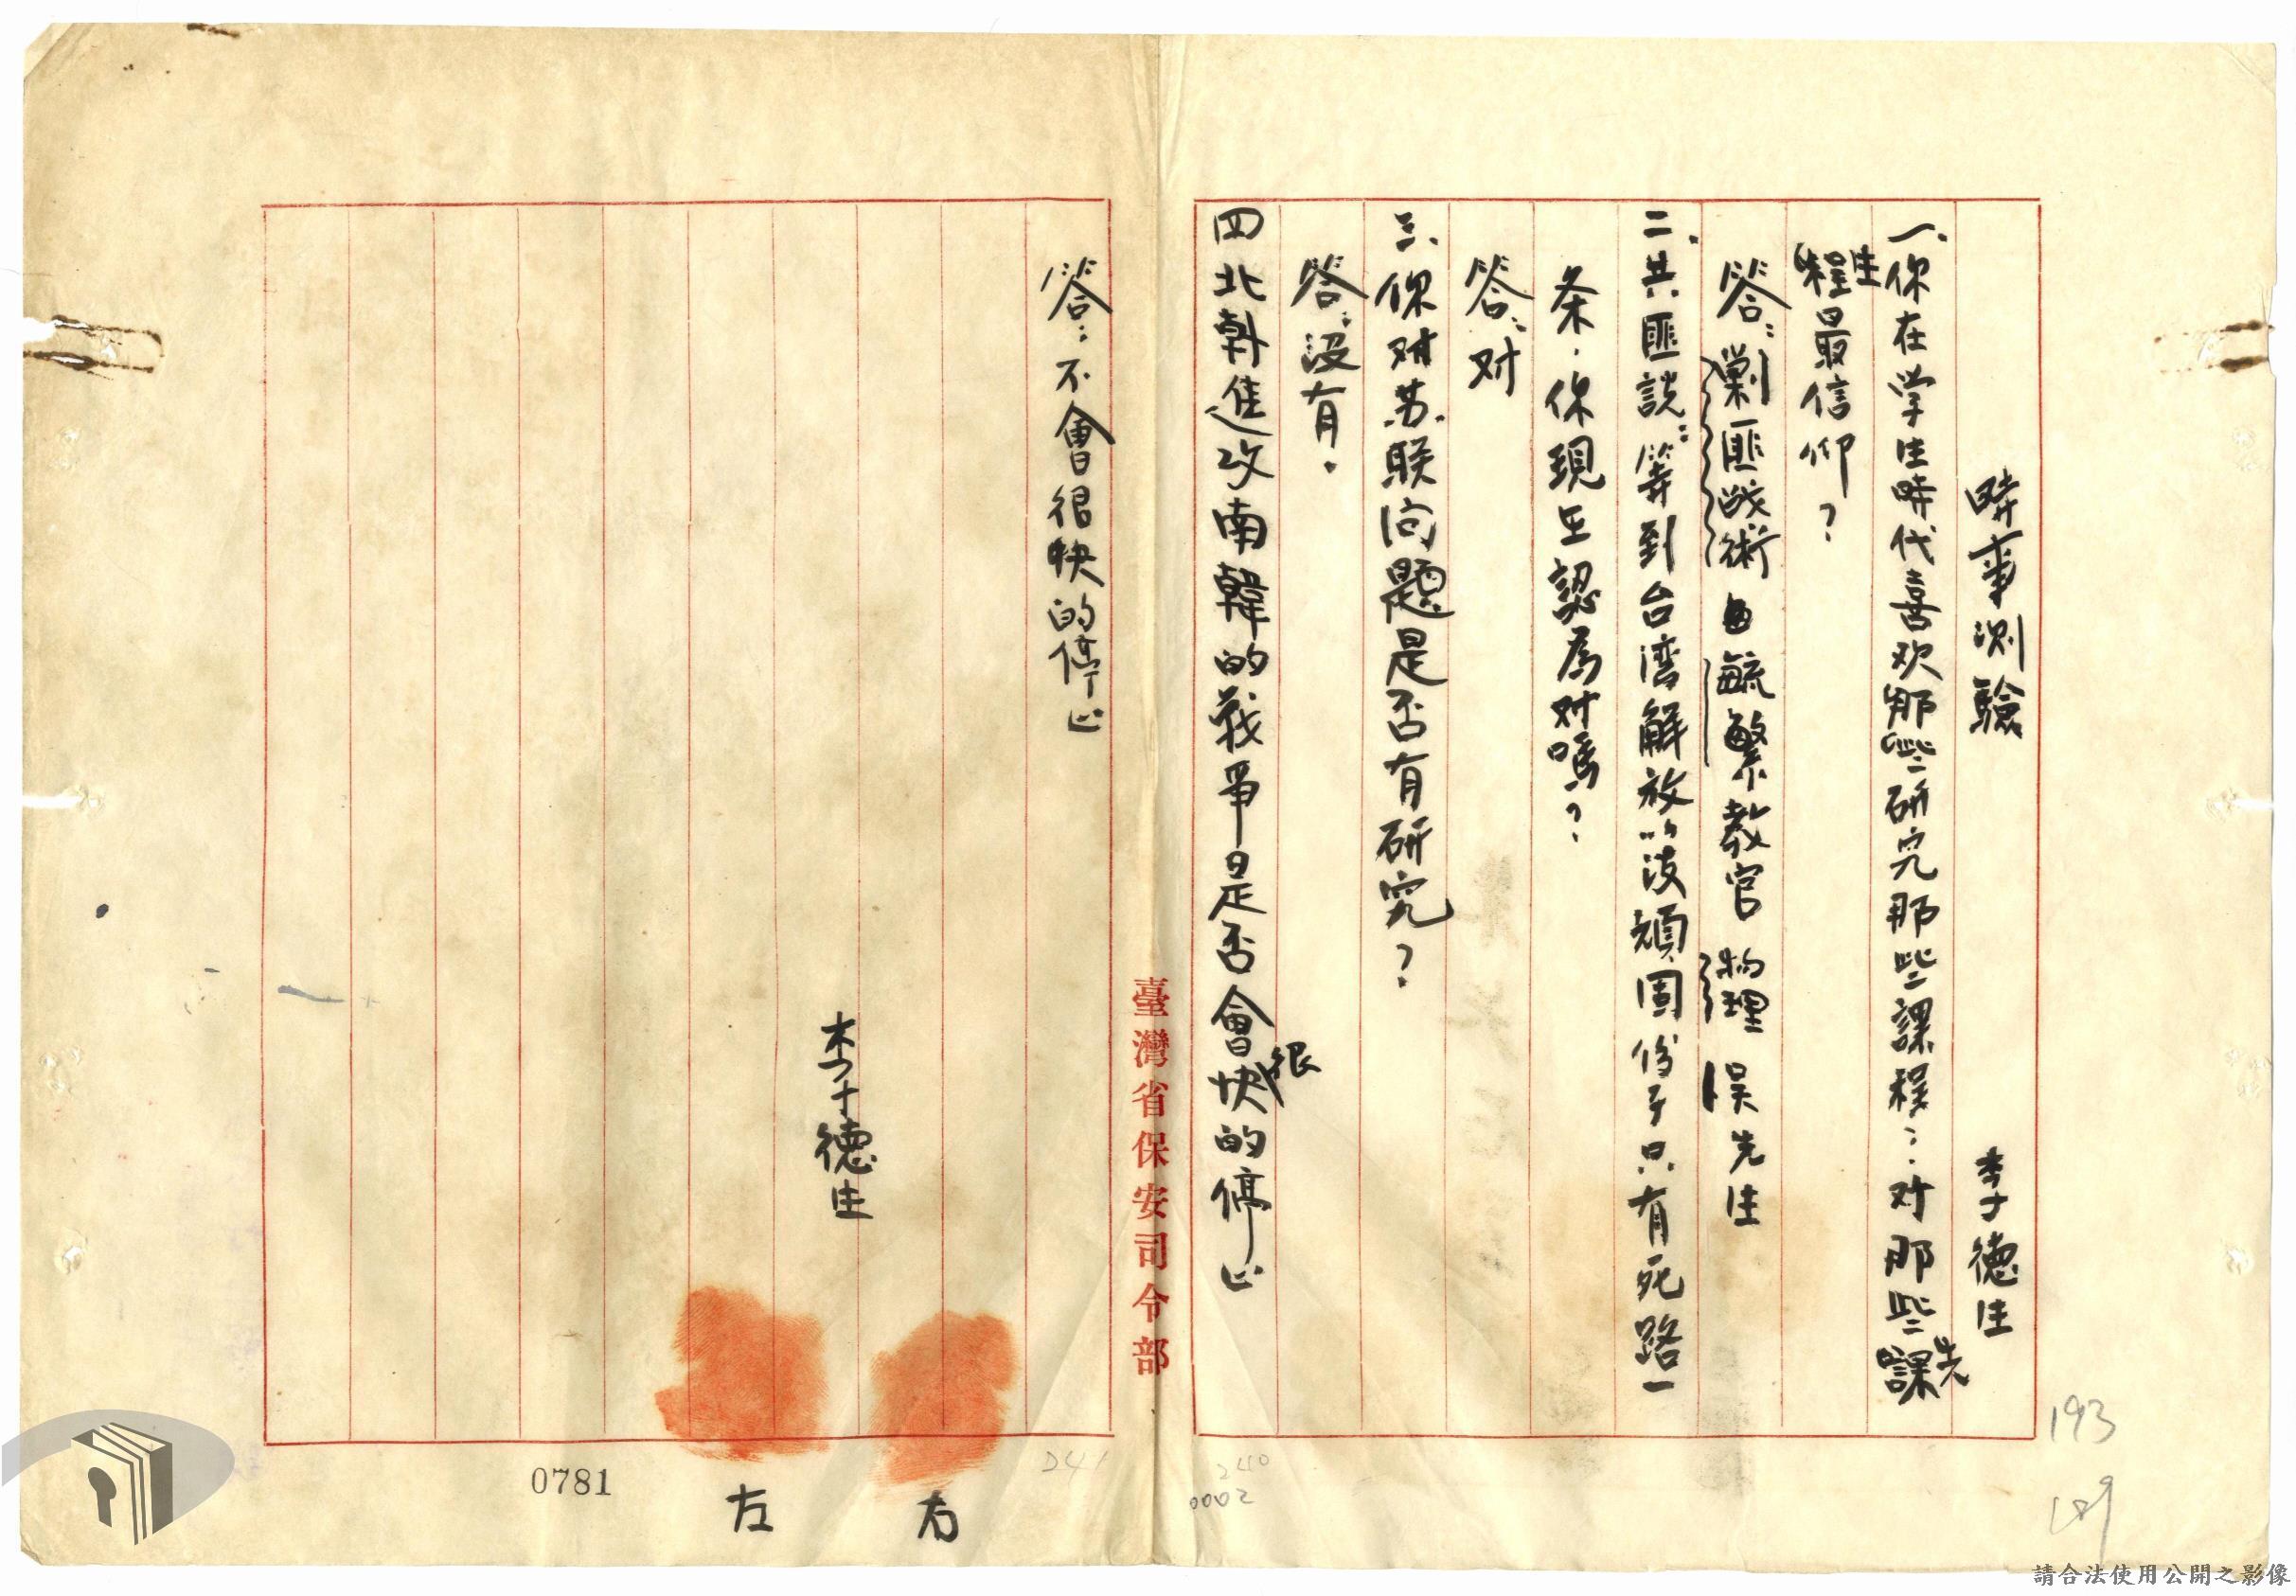 時事測驗　李德生
一、你在学生時代喜欢那些研究那些課程：对那些課先
生
程最信仰？
答：剿匪战術　毓繁教官　物理　吴先生
二、共匪説：等到台湾解放以後頑固份子只有死路一
条．你現在認為对嗎？
答：对
三、你对苏联问題是否有研究？
答：没有．
四北韩進攻南韓的戰爭是否會很快的停止
答：不會很快的停止
李德生
臺灣省保安司令部
右
左
0781
193
189
240
0002
D41
請合法使用公開之影像